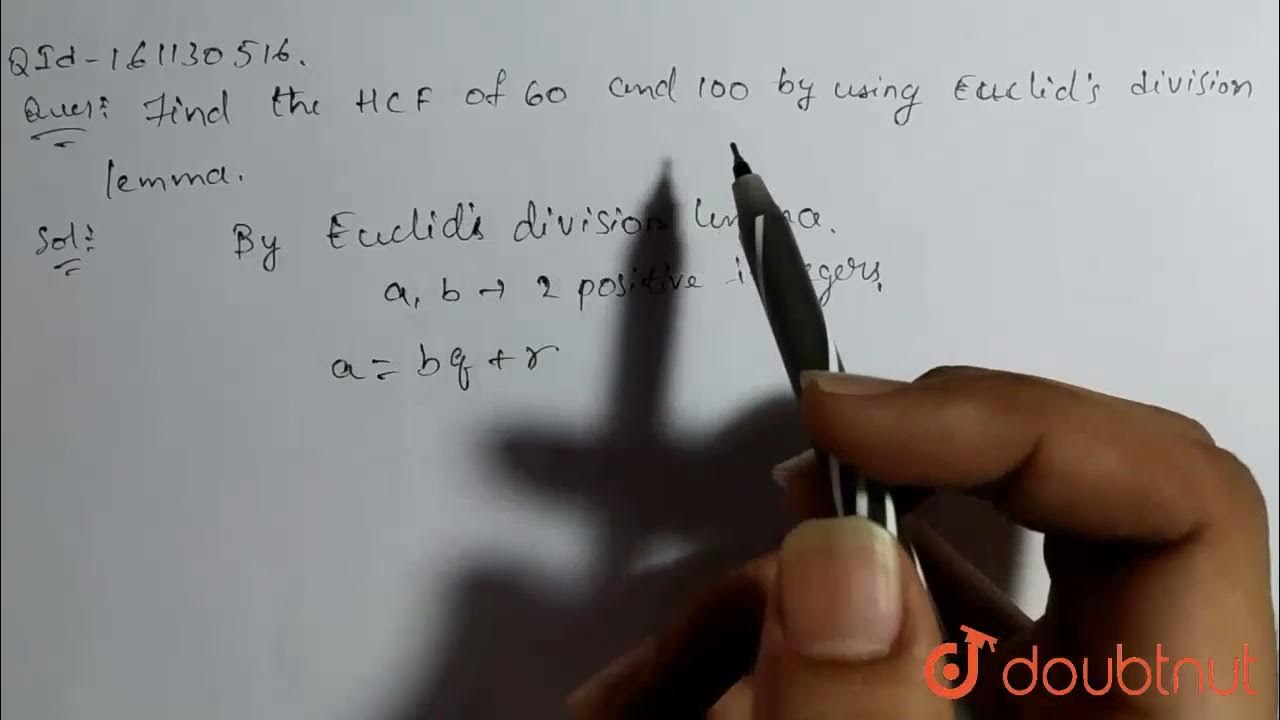 QId-161130516.
Ques: Find the HCF of 60 and 100 by using Euclid's division
lemma.
Sol: By Euclid's division
a, b → 2 positive
a = bq + r
doubtnut